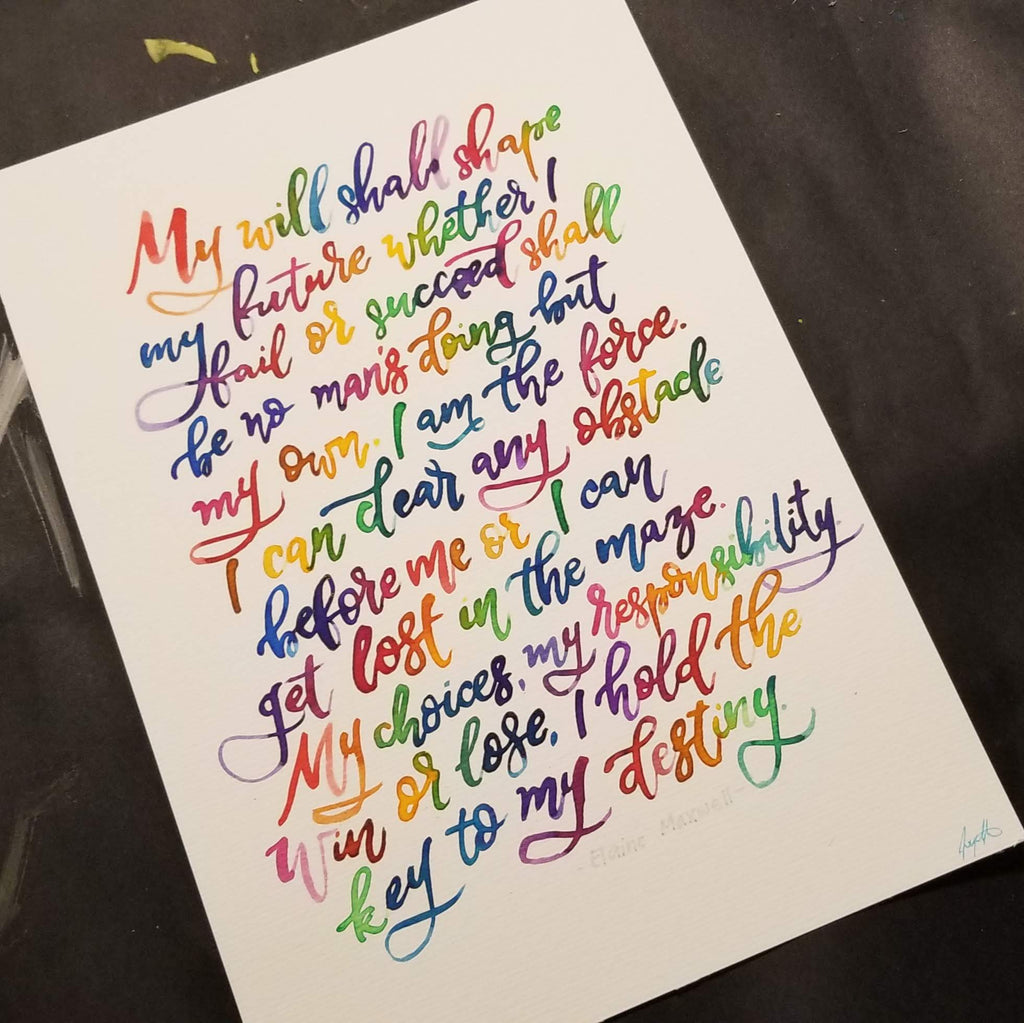 My will shall shape
my future whether I
fail or succeed shall
be no man's doing but
my own. I am the force.
I can clear any obstacle
before me or I can
get lost in the maze.
My choices, my responsibility.
Win or lose, I hold the
key to my destiny.
- Elaine Maxwell -